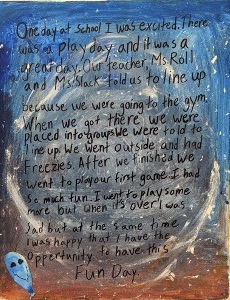 One day at school I was excited. There
was a play day and it was a
great day. Our teacher Ms. Roll
and Ms. Slack told us to line up
because we were going to the gym.
When we got there we were
placed into groups. We were told to
line up. We went outside and had
Freezies. After we finished we
went to play our first game. I had
so much fun. I went to play some
more but when it's over I was
sad but at the same time
I was happy that I have the
opportunity to have this
Fun Day.